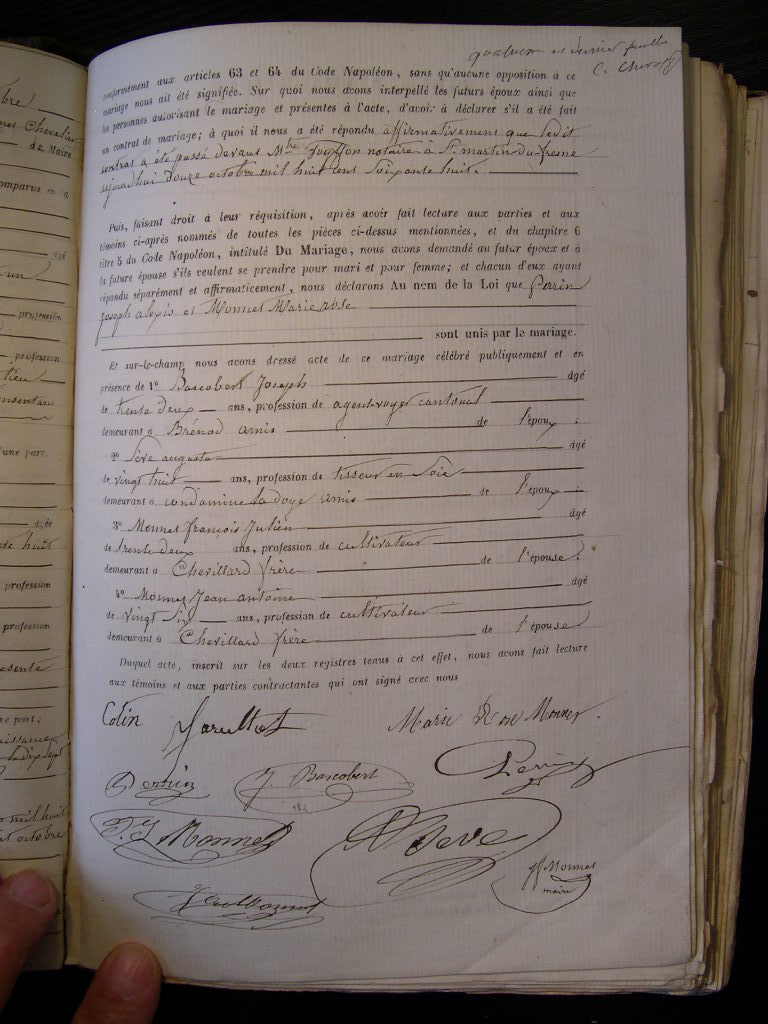 bre
Chevalier
de Maire
comparus en la
âgé
un
profession
profession
tieu
consentant
d'une part.
âgée
huit
profession
profession
présente
part;
naissance
mil huit
octobre
et dernier feuillet
C. Cheva
conformément aux articles 63 et 64 du Code Napoléon, sans qu'aucune opposition à ce
mariage nous ait été signifiée. Sur quoi nous avons interpellé les futurs époux ainsi que
les personnes autorisant le mariage et présentes à l'acte, d'avoir à déclarer s'il a été fait
un contrat de mariage; à quoi il nous a été répondu affirmativement que ledit
contrat a été passé devant Mtre notaire à St martin du fresne
aujourd'hui douze octobre mil huit cent soixante huit.
Puis, faisant droit à leur réquisition, après avoir fait lecture aux parties et aux
témoins ci-après nommés de toutes les pièces ci-dessus mentionnées, et du chapitre 6
titre 5 du Code Napoléon, intitulé Du Mariage, nous avons demandé au futur époux et à
la future épouse s'ils veulent se prendre pour mari et pour femme; et chacun d'eux ayant
répondu séparément et affirmativement, nous déclarons Au nom de la Loi que Perrin
Joseph alexis et Monnet Marie rose
sont unis par le mariage.
Et sur-le-champ nous avons dressé acte de ce mariage célébré publiquement et en
présence de 1° Bascobert Joseph âgé
de trente Deux ans, profession de agent voyer cantonal
demeurant à Brénod amis de l'époux ;
2° Sève auguste âgé
de vingt huit ans, profession de tisseur en Soie
demeurant à condamine la doye amis de l'époux ;
3° Monnet françois Julien âgé
de trente deux ans, profession de cultivateur
demeurant à Chevillard frère de l'épouse ;
4° Monnet Jean antoine âgé
de Vingt Six ans, profession de cultivateur
demeurant à Chevillard frère de l'épouse
Duquel acte, inscrit sur les deux registres tenus à cet effet, nous avons fait lecture
aux témoins et aux parties contractantes qui ont signé avec nous
Colin Marie Rose Monnet.
Perrin J. Bascobert Perrin
F. J Monnet A Seve
Monnet
maire
Monnet